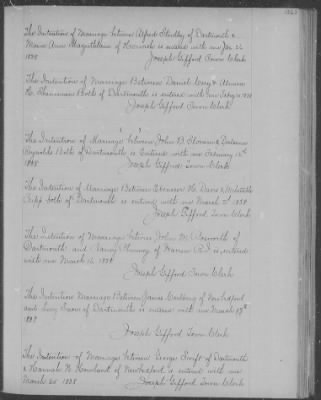 The Intention of Marriage between Alfred Studley of Dartmouth &
Marie Ann of Harwich is entered with me Jan 22
1838
Joseph Gifford Town Clerk
The Intention of Marriage Between Daniel &
H. Sherman Both of Dartmouth is entered with me 1838
Joseph Gifford Town Clerk
The Intention of Marriage between John B. &
Reynolds Both of Dartmouth is Entered with me February 12th
1838 Joseph Gifford Town Clerk
The Intention of Marriage Between Ebenezer H. Davis & Mehitable
both of Dartmouth is entered with me March 3d 1838
Joseph Gifford Town Clerk
The Intention of Marriage between John W. Bosworth of
Dartmouth and Nancy of Warren R.I. is entered
with me March 14 1838
Joseph Gifford Town Clerk
The Intention Marriage Between James of New Bedford
and Lucy of Dartmouth is entered with me March 17th
183
Joseph Gifford Town Clerk
The Intention of Marriage between George Swift of Dartmouth
& Hannah W. Howland of New Bedford is entered with me
March 20 1838 Joseph Gifford Town Clerk